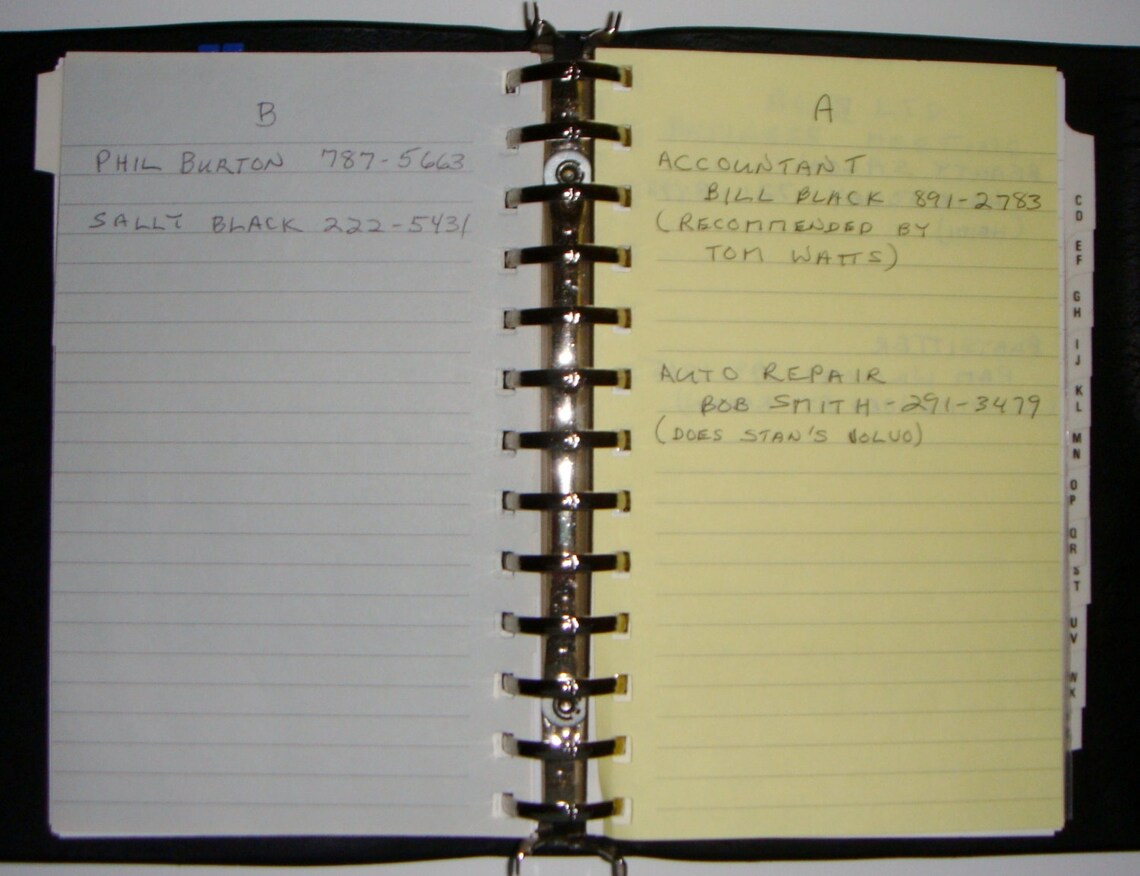 B
PHIL BURTON 787-5663
SALLY BLACK 222-5431
A
ACCOUNTANT
BILL BLACK 891-2783
(RECOMMENDED BY
TOM WATTS)
AUTO REPAIR
BOB SMITH - 291-3479
(DOES STAN'S VOLVO)
C
D
E
F
G
H
I
J
K
L
M
N
O
P
Q
R
S
T
U
V
W
X